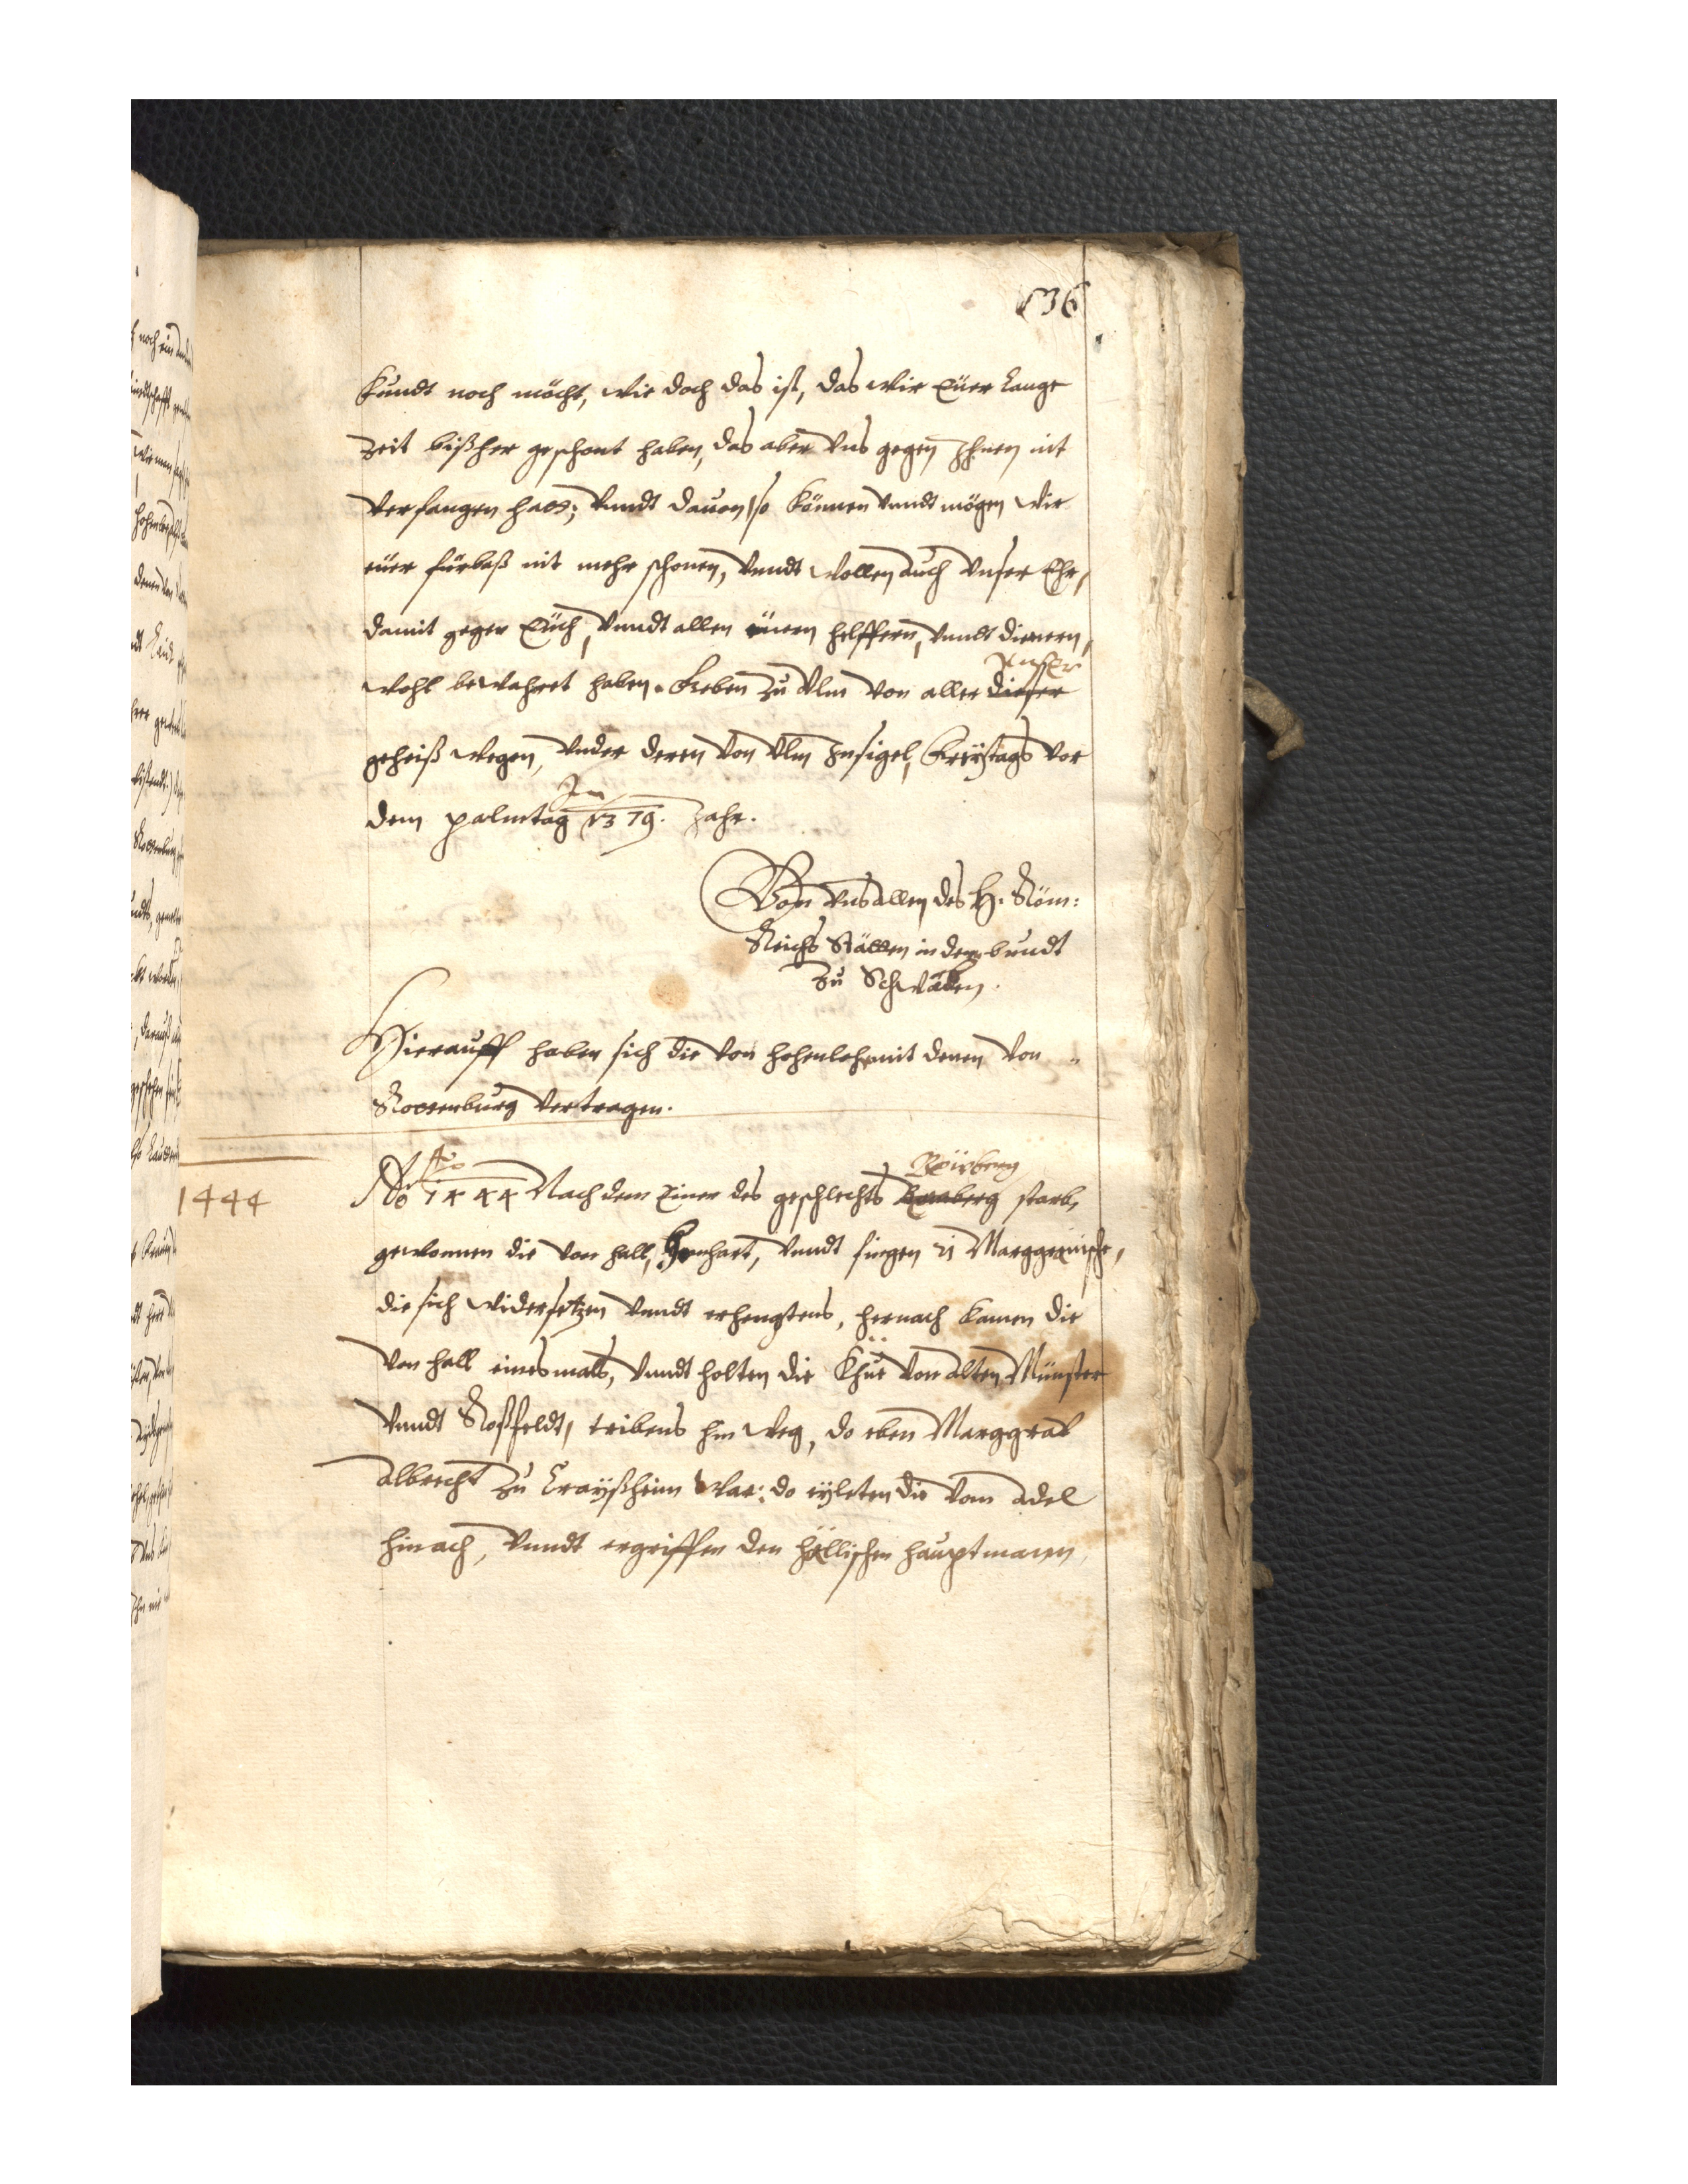 136
Kundt noch möcht, wie doch das ist, das wir Euer Lange
Zeit bißher geschont haben, das aber Uns gegen Ihnen nit
verfangen hatt; Vnndt dauon so können Vnndt mögen wir
euer fürbaß nit mehr schonen, Vnndt wollen auch Vnser Ehr,
damit gegen Euch, Vnndt allen euern helffern, Vnndt dienern,
Vnser
wohl bewahret haben. Geben zu Ulm von aller dieser
geheiß wegen, Vnder deren von Ulm Insigel, Freytags vor
Im
dem palmtag 1379. Jahr.
Von Vns allen des H. Röm:
Reichs Stätten in dem bundt
Zu Schwaben.
Hierauff haben sich die von Hohenlohe mit denen von
Rottenburg vertragen.
1444
Ao
Ao 1444 Nach dem Einer des geschlechts starb,
gewonnen die von Hall, Vnndt fiengen Marggräuische,
die sich widersetzen Vnndt erhengtens, hernach kamen die
von Hall einesmals, Vnndt holten die Khüe von Alten Münster
Vnndt Roßfeldt, tribens hin weg, do eben Marggrav
Albrecht zu Crayßheim war: do eyleten die vom Adel
hinach, Vnndt ergriffen den Hällischen hauptmann,